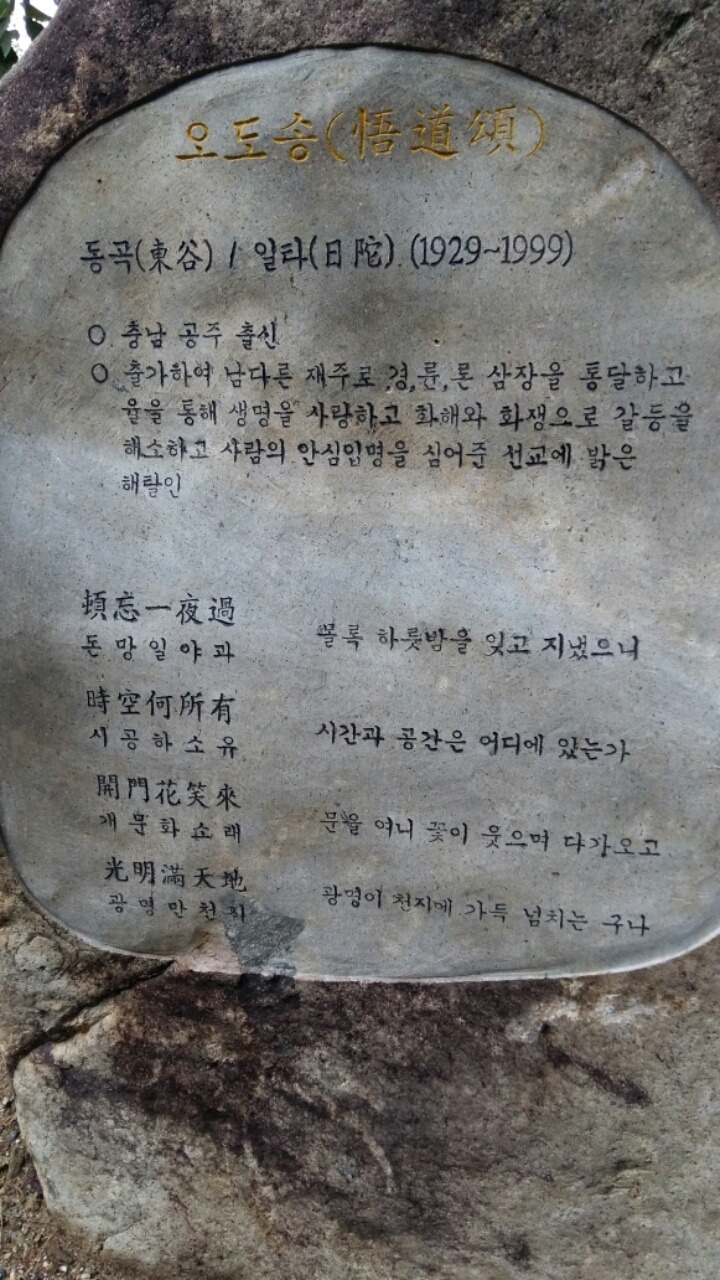 오도송(悟道頌)
동곡(東谷) / 일타(日陀) (1929~1999)
○ 충남 공주 출신
○ 출가하여 남다른 재주로 경,륜,론 삼장을 통달하고
율을 통해 생명을 사랑하고 화해와 화쟁으로 갈등을
해소하고 사람의 안심입명을 심어준 선교에 밝은
해탈인
頓忘一夜過
돈망일야과
몰록 하룻밤을 잊고 지냈으니
時空何所有
시공하소유
시간과 공간은 어디에 있는가
開門花笑來
개문화소래
문을 여니 꽃이 웃으며 다가오고
光明滿天地
광명만천지
광명이 천지에 가득 넘치는 구나